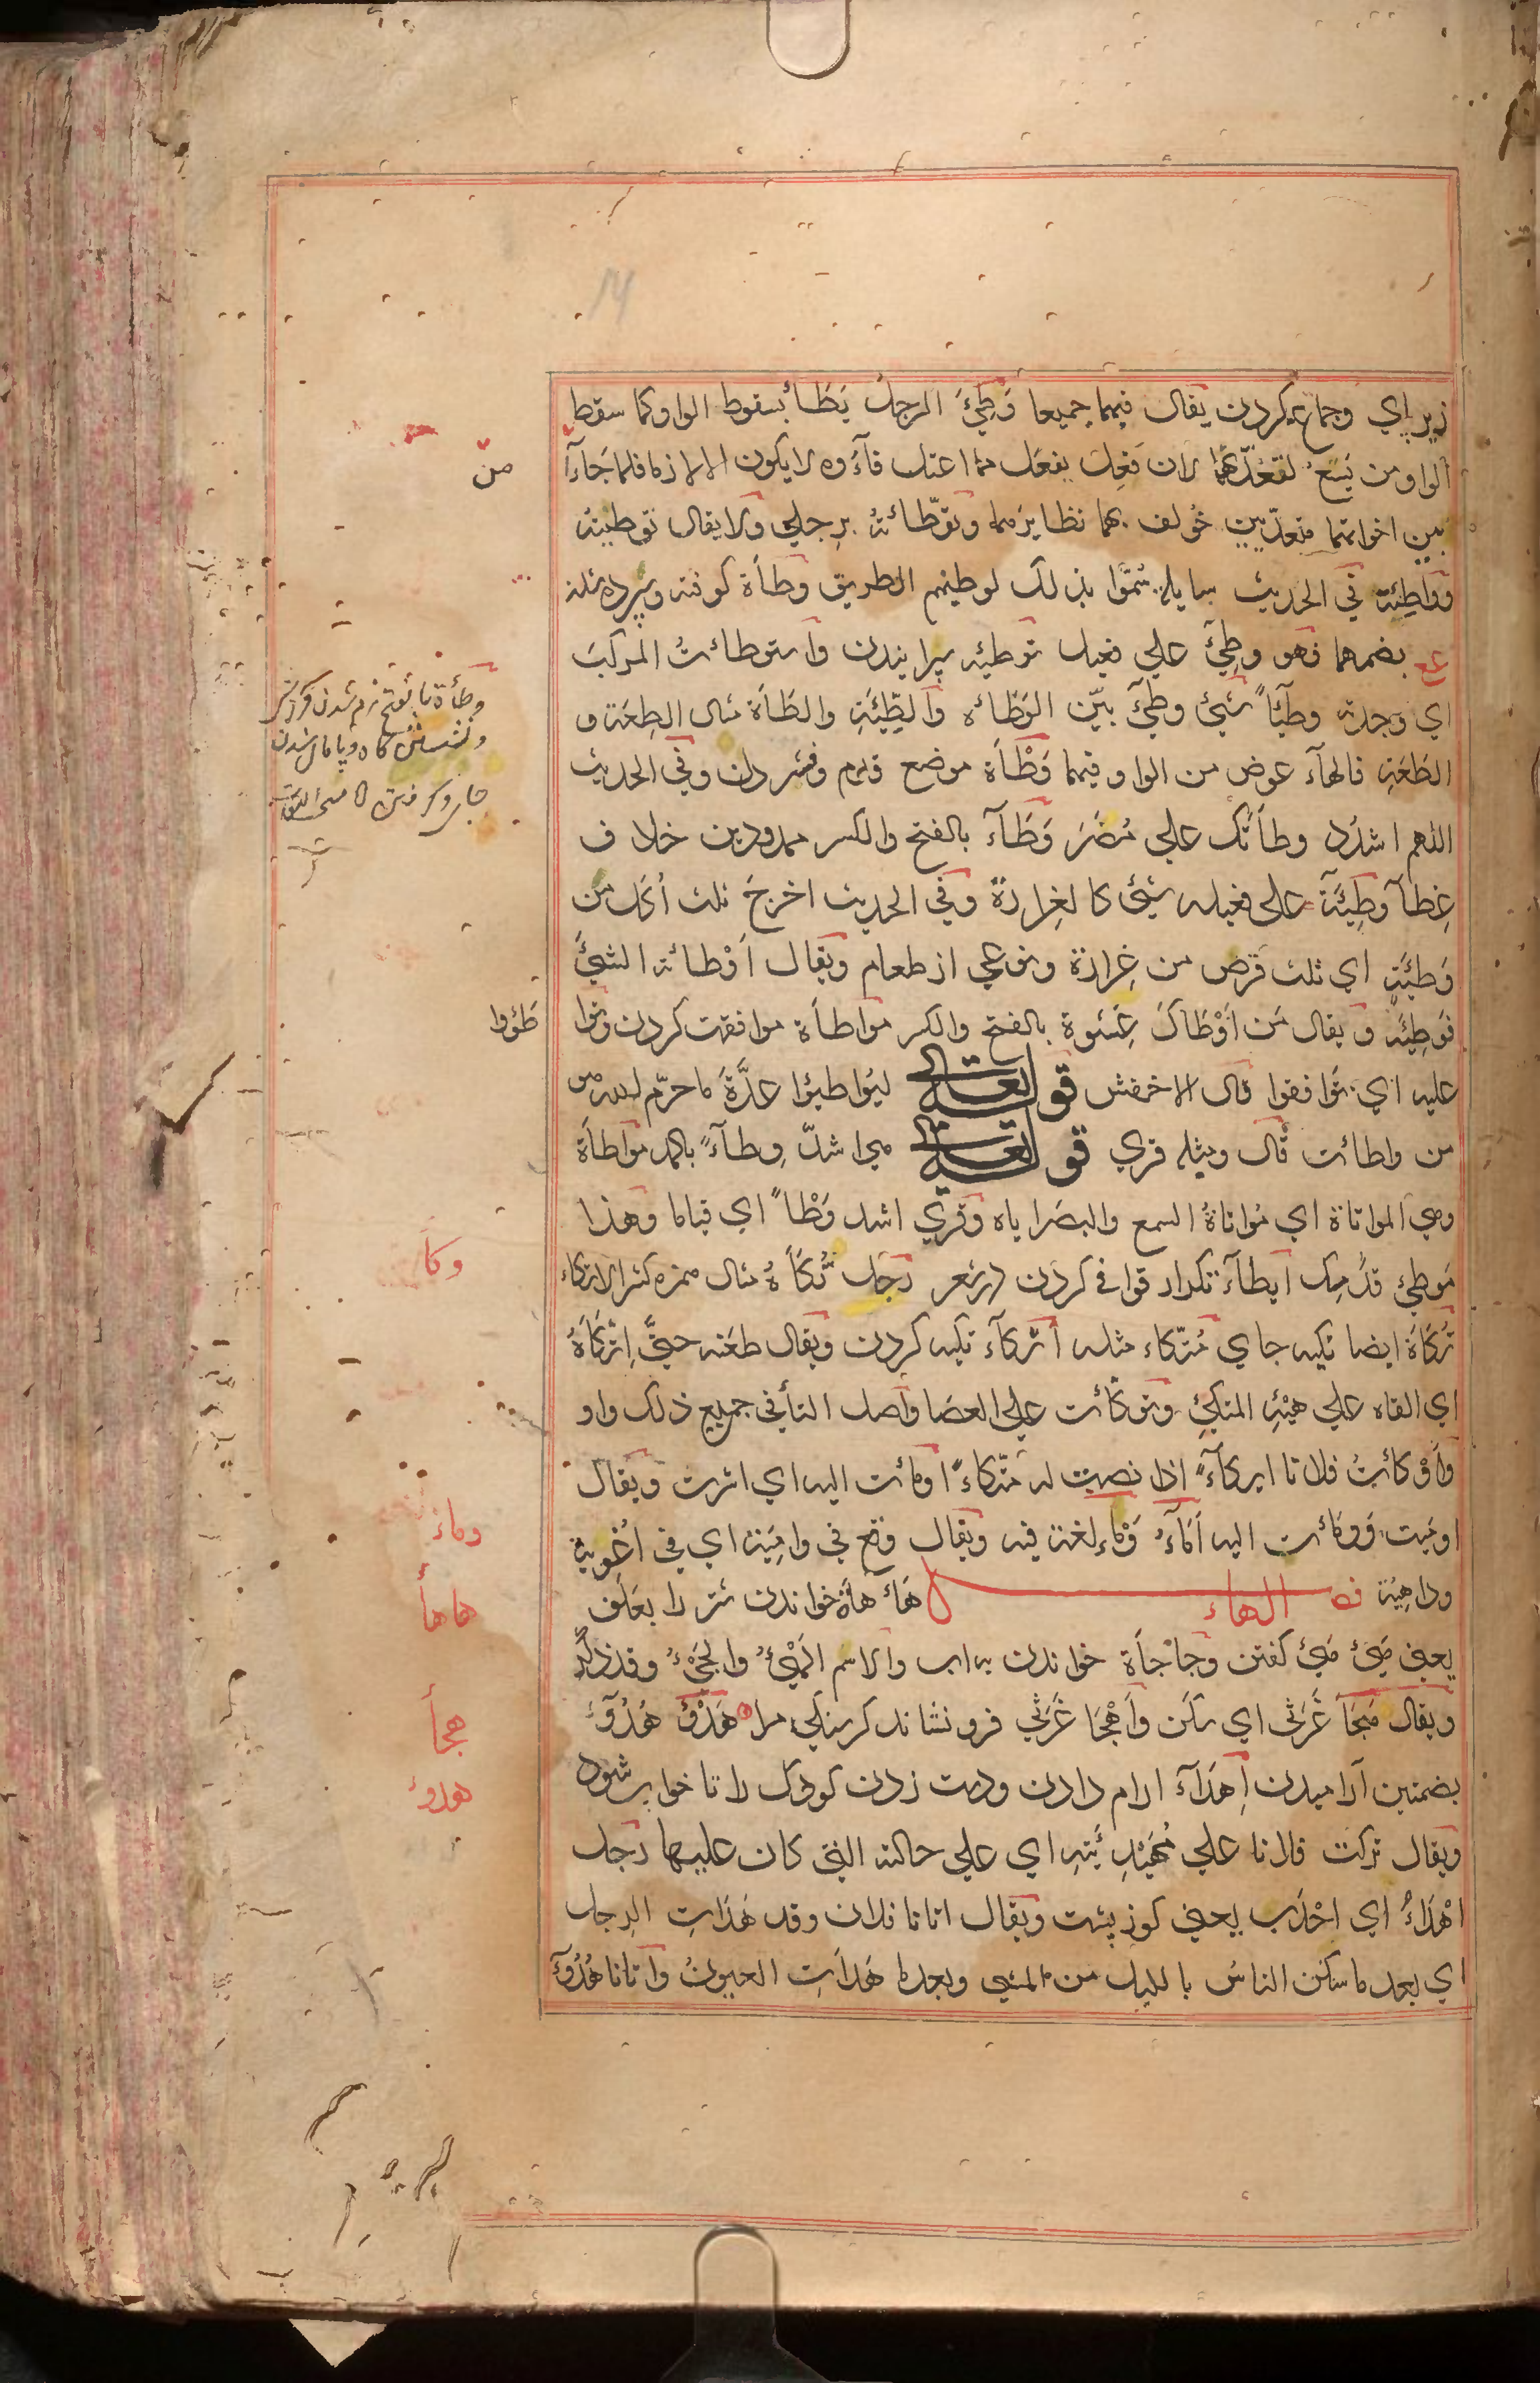 زير پاي وجماع كردن يقال فيهما جميعا وَطِئَ الرجلُ يَطَأ بسقوط الواو كما سقط
الواو من يَسَعُ لتعدّيهما لان فَعِلَ يفعَل مما اعتل فآؤه لا يكون الا لازما فلما جَاءآ
من
بين اخواتهما متعدّيين خُولف بهما نظايرهما وتوطّأتهُ برجلي ولا يقال توطيته
وَوَاطِئة في الحديث سايلة سُمّوا بذلك لوطئهم الطريق وطأة كوفته وسپرده شدن
بضمهما فهو وطِئٌ علي فعيل توطئه سپرانيدن وٱستوطأتُ المركبَ
اي وجدته وطيئًا شيئ وطِئٌ بيّن الوَطَائه وٱلطِّئَةِ والطَأَة مثال الطِعَة و
الطَعَةِ فالهآء عوض من الواو فيهما وَطْأَة موضع قدم وفشردن وفي الحديث
اللهم اشدُد وطأتَك علي مُضَرَ وَطَآء بالفتح والكسر ممدودين خلاف
غِطآ وَطِيئَة علي فعيله شيئ كالغِرارة وفي الحديث اخرجَ ثلث أُكَل من
وَطيئَةٍ اي ثلث قرص من غِرارة ونوعي از طعام ويقال أوْطأته الشيئَ
فَوَطِئَه ويقال مَن أَوْطَاكَ عِشوة بالفتح والكسر مواطأة موافقت كردن وتوا
طَؤوا
عليه اي توافقوا قال الاخفش قوله تعالى ليُواطِئوا عدَّةَ ما حرّم الله هو
من واطأت قال ومثله قري قوله تعالى هي اشدّ وِطآءً بالمد مواطأة
وهي المواتاة اي مُواتاةُ السمع والبصر اياه وقُري اشد وَطْأً اي قياما وهذا
مَوطِئ قدَمِك ايطآء تكرار قوافي كردن در شعر رجل تُكَأَهٌ مثال همزه كثير الاتكاء
تُكَأَة ايضا تكيه جاي مُتّكاء مثله اتّكآء تكيه كردن ويقال طعنه حتيَّ اِتّكَأَهُ
اي القاه علي هيئةِ المتكئِ وتوكّأت علي العصا واصل التأفي جميع ذلك واو
وٱَوْكأتُ فلانا ايكآءً اذا نصبت له متّكاءً اومأت اليه اي اشرت ويقال
اوميت ووَمَأت اليه اَمَاءُ وَمْاء لغة فيه ويقال وقع في وامِئة اي في اُغوية
وداهيَة فصل الهاء هَاءَ هاَة خواندن شتر را بعلف
يعني هَئ هَئ گفتن وجَأجَأة خواندن بآب والاسم الهَئْءُ والجَئءُ وقد ذكر
ويقال هجَأ غَرَثي اي سكن وأَهْجَأ غَرَثي فرو نشاند كرسنگي مرا هَدْؤ هُدُوٓء
بضمتين آراميدن اِهْدَآء ارام دادن ودست زدن كودك را تا خواب شود
ويقال تركت فلانا علي مُهَيْدِئَتِه اي علي حالته التي كان عليها رجل
اَهْدَاءُ اي احْدَب يعني كوز پشت ويقال اتانا فلان وقد هَدَاتِ الرجل
اي بعد ما سكن الناس بالليل من المشي وبعد ما هَدَاتِ العيون وأتانا هُدُوٓء
وطأة بالفتح نرم شدن
وَكَأَ
ومأء
هاهأ
هجأ
هدؤ